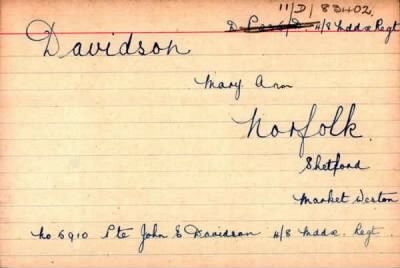 11/D/83402.
D 4/8 Mddx Regt
Davidson
Mary Ann
Norfolk.
Shetford
Market Weston
No 5910 Pte John E Davidson 4/8 Mddx. Regt.